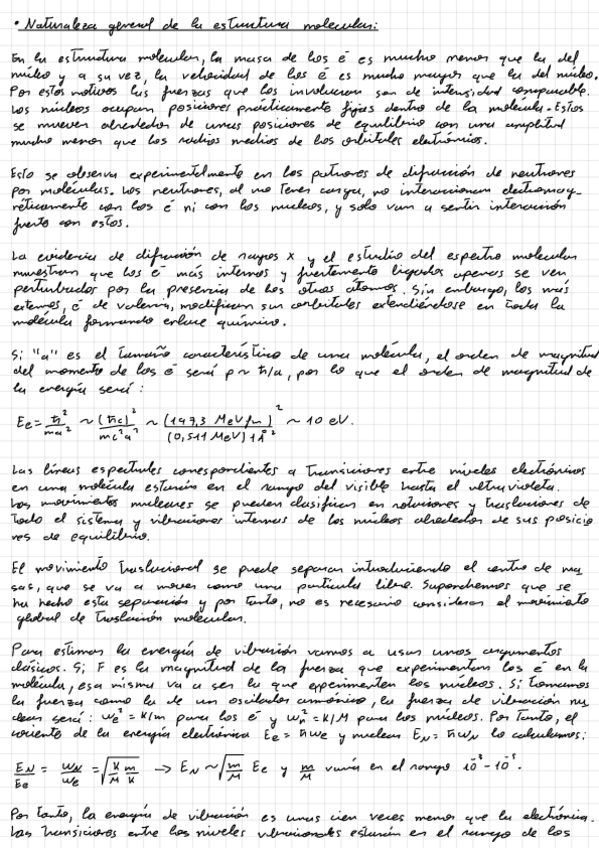 • Naturaleza general de la estructura molecular:
En la estructura molecular, la masa de los é es mucho menor que la del
núcleo y a su vez, la velocidad de los é es mucho mayor que la del núcleo.
Por estos motivos las fuerzas que los involucran son de intensidad comparable.
Los núcleos ocupan posiciones prácticamente fijas dentro de la molécula. Estos
se mueven alrededor de unas posiciones de equilibrio con una amplitud
mucho menor que los radios medios de los orbitales electrónicos.
Esto se observa experimentalmente en los patrones de difracción de neutrones
por moléculas. Los neutrones, al no tener carga, no interaccionan electromag-
néticamente con los é ni con los nucleos, y solo van a sentir interacción
fuerte con estos.
La evidencia de difracción de rayos X y el estudio del espectro molecular
muestran que los é más internos y fuertemente ligados apenas se ven
perturbados por la presencia de los otros átomos. Sin embargo, los más
externos, é de valencia, modifican sus orbitales extendiéndose en toda la
molécula formando enlace químico.
Si "a" es el tamaño característico de una molécula, el orden de magnitud
del momento de los é será p ~ ħ/a, por lo que el orden de magnitud de
la energía será:
Ee = ħ²/ma² ~ (ħc)²/mc²a² ~ (197,3 MeV fm)²/(0,511 MeV) 1 Å² ~ 10 eV.
Las líneas espectrales correspondientes a transiciones entre niveles electrónicos
en una molécula estarán en el rango del visible hasta el ultravioleta.
Los movimientos nucleares se pueden clasificar en rotaciones y traslaciones de
todo el sistema y vibraciones internas de los núcleos alrededor de sus posicio
nes de equilibrio.
El movimiento traslacional se puede separar introduciendo el centro de ma
sas, que se va a mover como una partícula libre. Supondremos que se
ha hecho esta separación y por tanto, no es necesario considerar el movimiento
global de traslación molecular.
Para estimar la energía de vibración vamos a usar unos argumentos
clásicos. Si F es la magnitud de la fuerza que experimentan los é en la
molécula, esa misma va a ser la que experimenten los núcleos. Si tomamos
la fuerza como la de un oscilador armónico, la fuerza de vibración nu
clear será: ωe² = K/m para los é y ωN² = K/M para los núcleos. Por tanto, el
cociente de la energía electrónica Ee = ħωe y nuclear EN = ħωN lo calculamos:
EN/Ee = ωN/ωe = √(K/M m/K) → EN ~ √(m/M) Ee y m/M varía en el rango 10⁻³ - 10⁻⁵.
Por tanto, la energía de vibración es unas cien veces menor que la electrónica.
Las transiciones entre los niveles vibracionales estarán en el rango de los